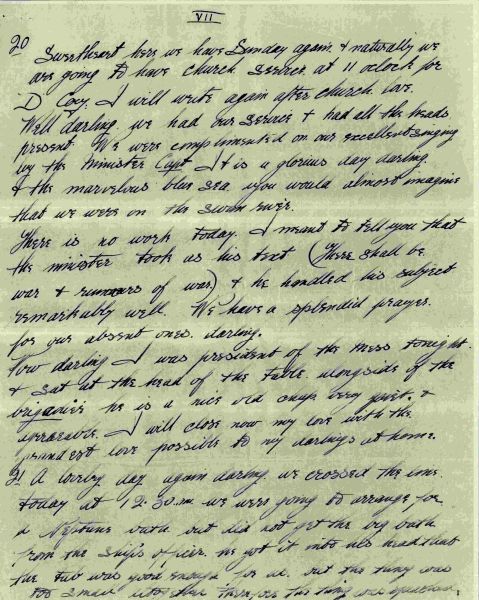 VII
20 Sweetheart here we have Sunday again & naturally we
are going to have church service at 11 oclock for
D Coy. I will write again after church love.
Well darling we had our service & had all the heads
present. We were complimented on our excellent singing
by the minister Capt It is a glorious day darling.
& the marvelous blue sea you would almost imagine
that we were on the Swan river.
There is no work today. I meant to tell you that
the minister took as his text (There shall be
war & rumours of war) & he handled his subject
remarkably well. We have a splendid prayer
for our absent ones darling.
Now darling I was president of the mess tonight
& sat at the head of the table alongside of the
brigadier he is a nice old chap very quiet &
agreeable. I will close now my love with the
grandest love possible to my darlings at home.
21 A lovely day again darling we crossed the line
today at 12.30 we were going to arrange for
a Neptune bath but did not get the big bath
from the ship's officer. he got it into his head that
the tub was good enough for us. but the thing was
too small altogether therefore the thing was